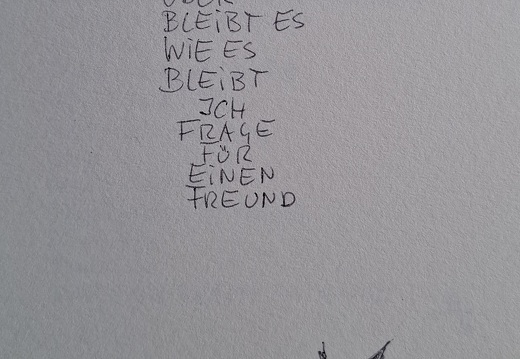 BLEiBT ES
WiE ES
BLEiBT
ICH
FRAGE
FÜR
EiNEN
FREUND